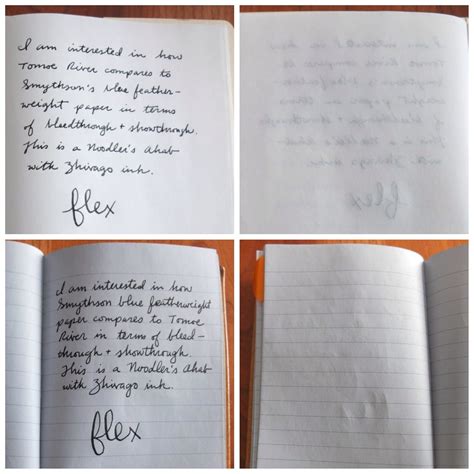 I am interested in how
Tomoe River compares to
Smythson's blue feather-
weight paper in terms
of bleedthrough + showthrough.
This is a Noodler's Ahab
with Zhivago ink.
flex
I am interested in how
Smythson blue featherweight
paper compares to Tomoe
River in terms of bleed-
through + showthrough.
This is a Noodler's Ahab
with Zhivago ink.
flex